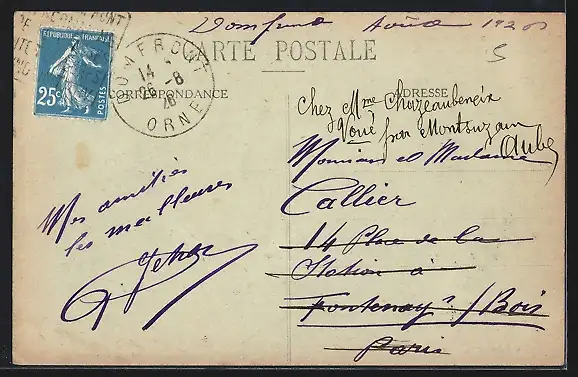 Domfront Août 1926
CARTE POSTALE
CORRESPONDANCE
ADRESSE
RÉPUBLIQUE FRANÇAISE
25c POSTES
DOMFRONT
14
26-8
26
ORNE
Chez Mme Chazeaubeneix
Voué par Montsuzain
Aube
Monsieur et Madame
Callier
14 Place de la
Station à
Fontenay s/Bois
Paris
Mes amitiés
les meilleures